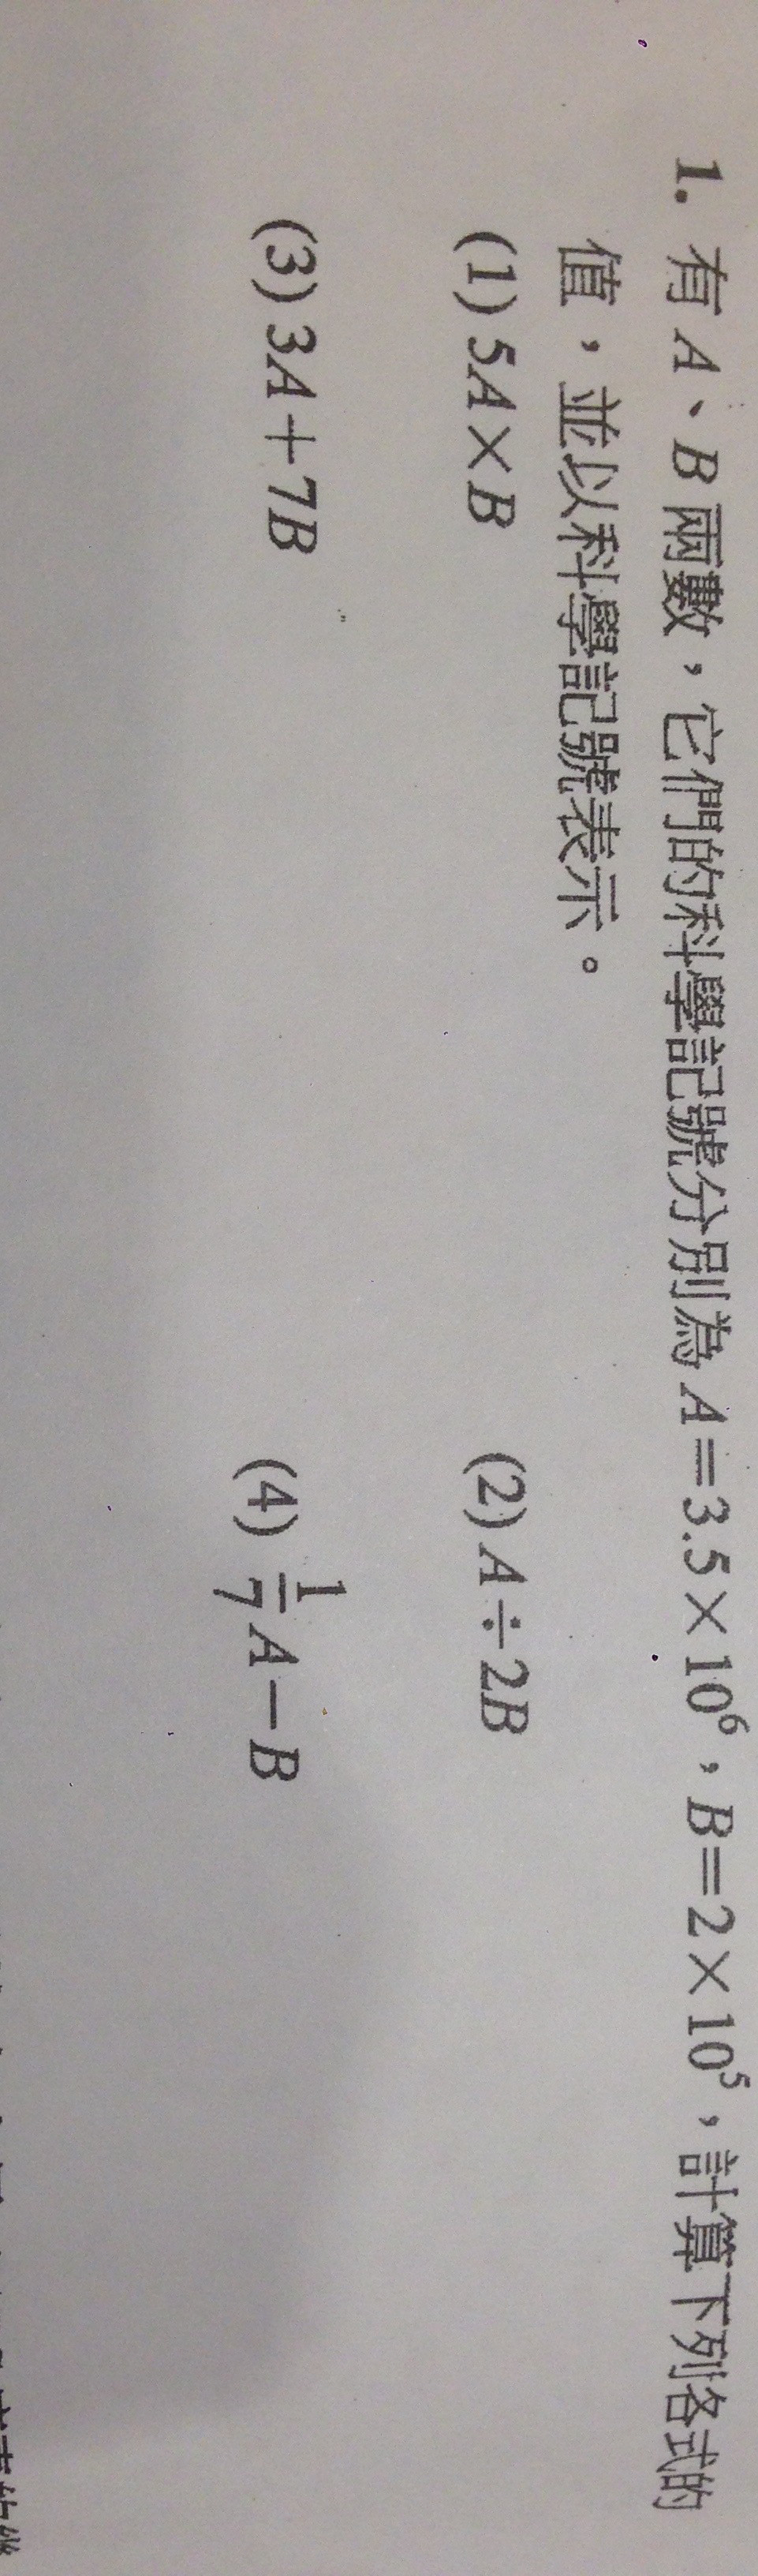 1. 有 A、B 兩數，它們的科學記號分別為 A＝3.5×10⁶，B＝2×10⁵，計算下列各式的
值，並以科學記號表示。
(1) 5A×B (2) A÷2B
(3) 3A＋7B (4) 1/7 A－B